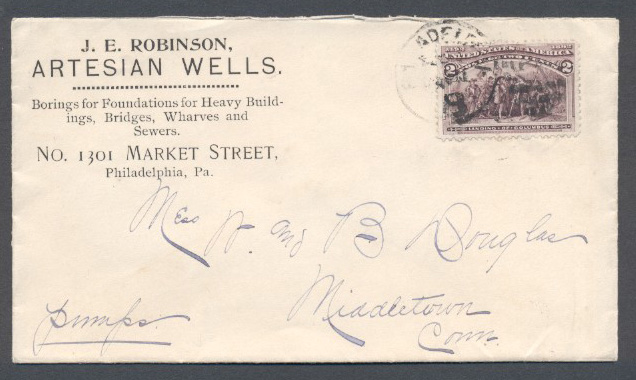 J. E. ROBINSON,
ARTESIAN WELLS.
Borings for Foundations for Heavy Build-
ings, Bridges, Wharves and
Sewers.
No. 1301 MARKET STREET,
Philadelphia, Pa.
ADELP
UNITED STATES OF AMERICA
2 2
LANDING OF COLUMBUS
Mess W. and B Douglas
Middletown
Conn.
Pumps.